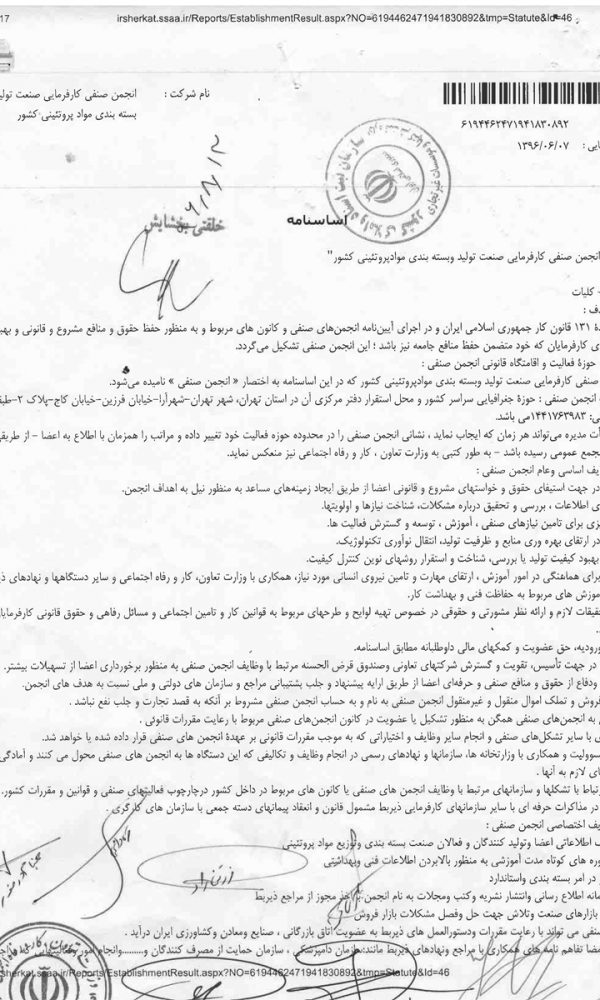 17 irsherkat.ssaa.ir/Reports/EstablishmentResult.aspx?NO=6194462471941830892&tmp=Statute&Id=46
نام شرکت : انجمن صنفی کارفرمایی صنعت تولی
بسته بندی مواد پروتئینی کشور
۶۱۹۴۴۶۲۴۷۱۹۴۱۸۳۰۸۹۲
۱۳۹۶/۰۶/۰۷
سازمان ثبت اسناد و املاک کشور
خلقتی بخشایش
اساسنامه
انجمن صنفی کارفرمایی صنعت تولید وبسته بندی موادپروتئینی کشور"
- کلیات
دف :
دۀ ۱۳۱ قانون کار جمهوری اسلامی ایران و در اجرای آیین‌نامه انجمن‌های صنفی و کانون های مربوط و به منظور حفظ حقوق و منافع مشروع و قانونی و بهب
ی کارفرمایان که خود متضمن حفظ منافع جامعه نیز باشد ؛ این انجمن صنفی تشکیل می‌گردد.
حوزۀ فعالیت و اقامتگاه قانونی انجمن صنفی :
صنفی کارفرمایی صنعت تولید وبسته بندی موادپروتئینی کشور که در این اساسنامه به اختصار « انجمن صنفی » نامیده می‌شود.
ت انجمن صنفی : حوزۀ جغرافیایی سراسر کشور و محل استقرار دفتر مرکزی آن در استان تهران، شهر تهران-شهرآرا-خیابان فرزین-خیابان کاج-پلاک ۲-طبق
ی: ۱۴۴۱۷۶۳۹۸۳می باشد.
أت مدیره می‌تواند هر زمان که ایجاب نماید ، نشانی انجمن صنفی را در محدوده حوزه فعالیت خود تغییر داده و مراتب را همزمان با اطلاع به اعضا – از طریق
جمع عمومی رسیده باشد – به طور کتبی به وزارت تعاون ، کار و رفاه اجتماعی نیز منعکس نماید.
یف اساسی وعام انجمن صنفی :
در جهت استیفای حقوق و خواستهای مشروع و قانونی اعضا از طریق ایجاد زمینه‌های مساعد به منظور نیل به اهداف انجمن.
ی اطلاعات ، بررسی و تحقیق درباره مشکلات، شناخت نیازها و اولویتها.
یزی برای تامین نیازهای صنفی ، آموزش ، توسعه و گسترش فعالیت ها.
در ارتقای بهره وری منابع و ظرفیت تولید، انتقال نوآوری تکنولوژیک.
بهبود کیفیت تولید یا بررسی، شناخت و استقرار روشهای نوین کنترل کیفیت.
برای هماهنگی در امور آموزش ، ارتقای مهارت و تامین نیروی انسانی مورد نیاز، همکاری با وزارت تعاون، کار و رفاه اجتماعی و سایر دستگاهها و نهادهای ذی
موزش های مربوط به حفاظت فنی و بهداشت کار.
قیقات لازم و ارائه نظر مشورتی و حقوقی در خصوص تهیه لوایح و طرحهای مربوط به قوانین کار و تامین اجتماعی و مسائل رفاهی و حقوق قانونی کارفرمایا
ورودیه، حق عضویت و کمکهای مالی داوطلبانه مطابق اساسنامه.
در جهت تأسیس، تقویت و گسترش شرکتهای تعاونی وصندوق قرض الحسنه مرتبط با وظایف انجمن صنفی به منظور برخورداری اعضا از تسهیلات بیشتر.
ودفاع از حقوق و منافع صنفی و حرفه‌ای اعضا از طریق ارایه پیشنهاد و جلب پشتیبانی مراجع و سازمان های دولتی و ملی نسبت به هدف های انجمن.
فروش و تملک اموال منقول و غیرمنقول انجمن صنفی به نام و به حساب انجمن صنفی مشروط بر آنکه به قصد تجارت و جلب نفع نباشد .
به انجمن‌های صنفی همگن به منظور تشکیل یا عضویت در کانون انجمن‌های صنفی مربوط با رعایت مقررات قانونی .
ی با سایر تشکل‌های صنفی و انجام سایر وظایف و اختیاراتی که به موجب مقررات قانونی بر عهدۀ انجمن های صنفی قرار داده شده یا خواهد شد.
سوولیت و همکاری با وزارتخانه ها، سازمانها و نهادهای رسمی در انجام وظایف و تکالیفی که این دستگاه ها به انجمن های صنفی محول می کنند و آمادگی
ی لازم به آنها .
تباط با تشکلها و سازمانهای مرتبط با وظایف انجمن های صنفی یا کانون های مربوط در داخل کشور درچارچوب فعالیتهای صنفی و قوانین و مقررات کشور.
در مذاکرات حرفه ای با سایر سازمانهای کارفرمایی ذیربط مشمول قانون و انعقاد پیمانهای دسته جمعی با سازمان های کارگری .
یف اختصاصی انجمن صنفی :
ک اطلاعاتی اعضا وتولید کنندگان و فعالان صنعت بسته بندی وتوزیع مواد پروتئینی
وره های کوتاه مدت آموزشی به منظور بالابردن اطلاعات فنی وبهداشتی
در امر بسته بندی واستاندارد
مانه اطلاع رسانی وانتشار نشریه وکتب ومجلات به نام انجمن با اخذ مجوز از مراجع ذیربط
بازارهای صنعت وتلاش جهت حل وفصل مشکلات بازار فروش
صنفی می تواند با رعایت مقررات ودستورالعمل های ذیربط به عضویت اتاق بازرگانی ، صنایع ومعادن وکشاورزی ایران درآید .
مضا تفاهم نامه های همکاری با مراجع ونهادهای ذیربط مانند:سازمان دامپزشکی ، سازمان حمایت از مصرف کنندگان و........وانجام امور
sherkat.ssaa.ir/Reports/EstablishmentResult.aspx?NO=6194462471941830892&tmp=Statute&Id=46